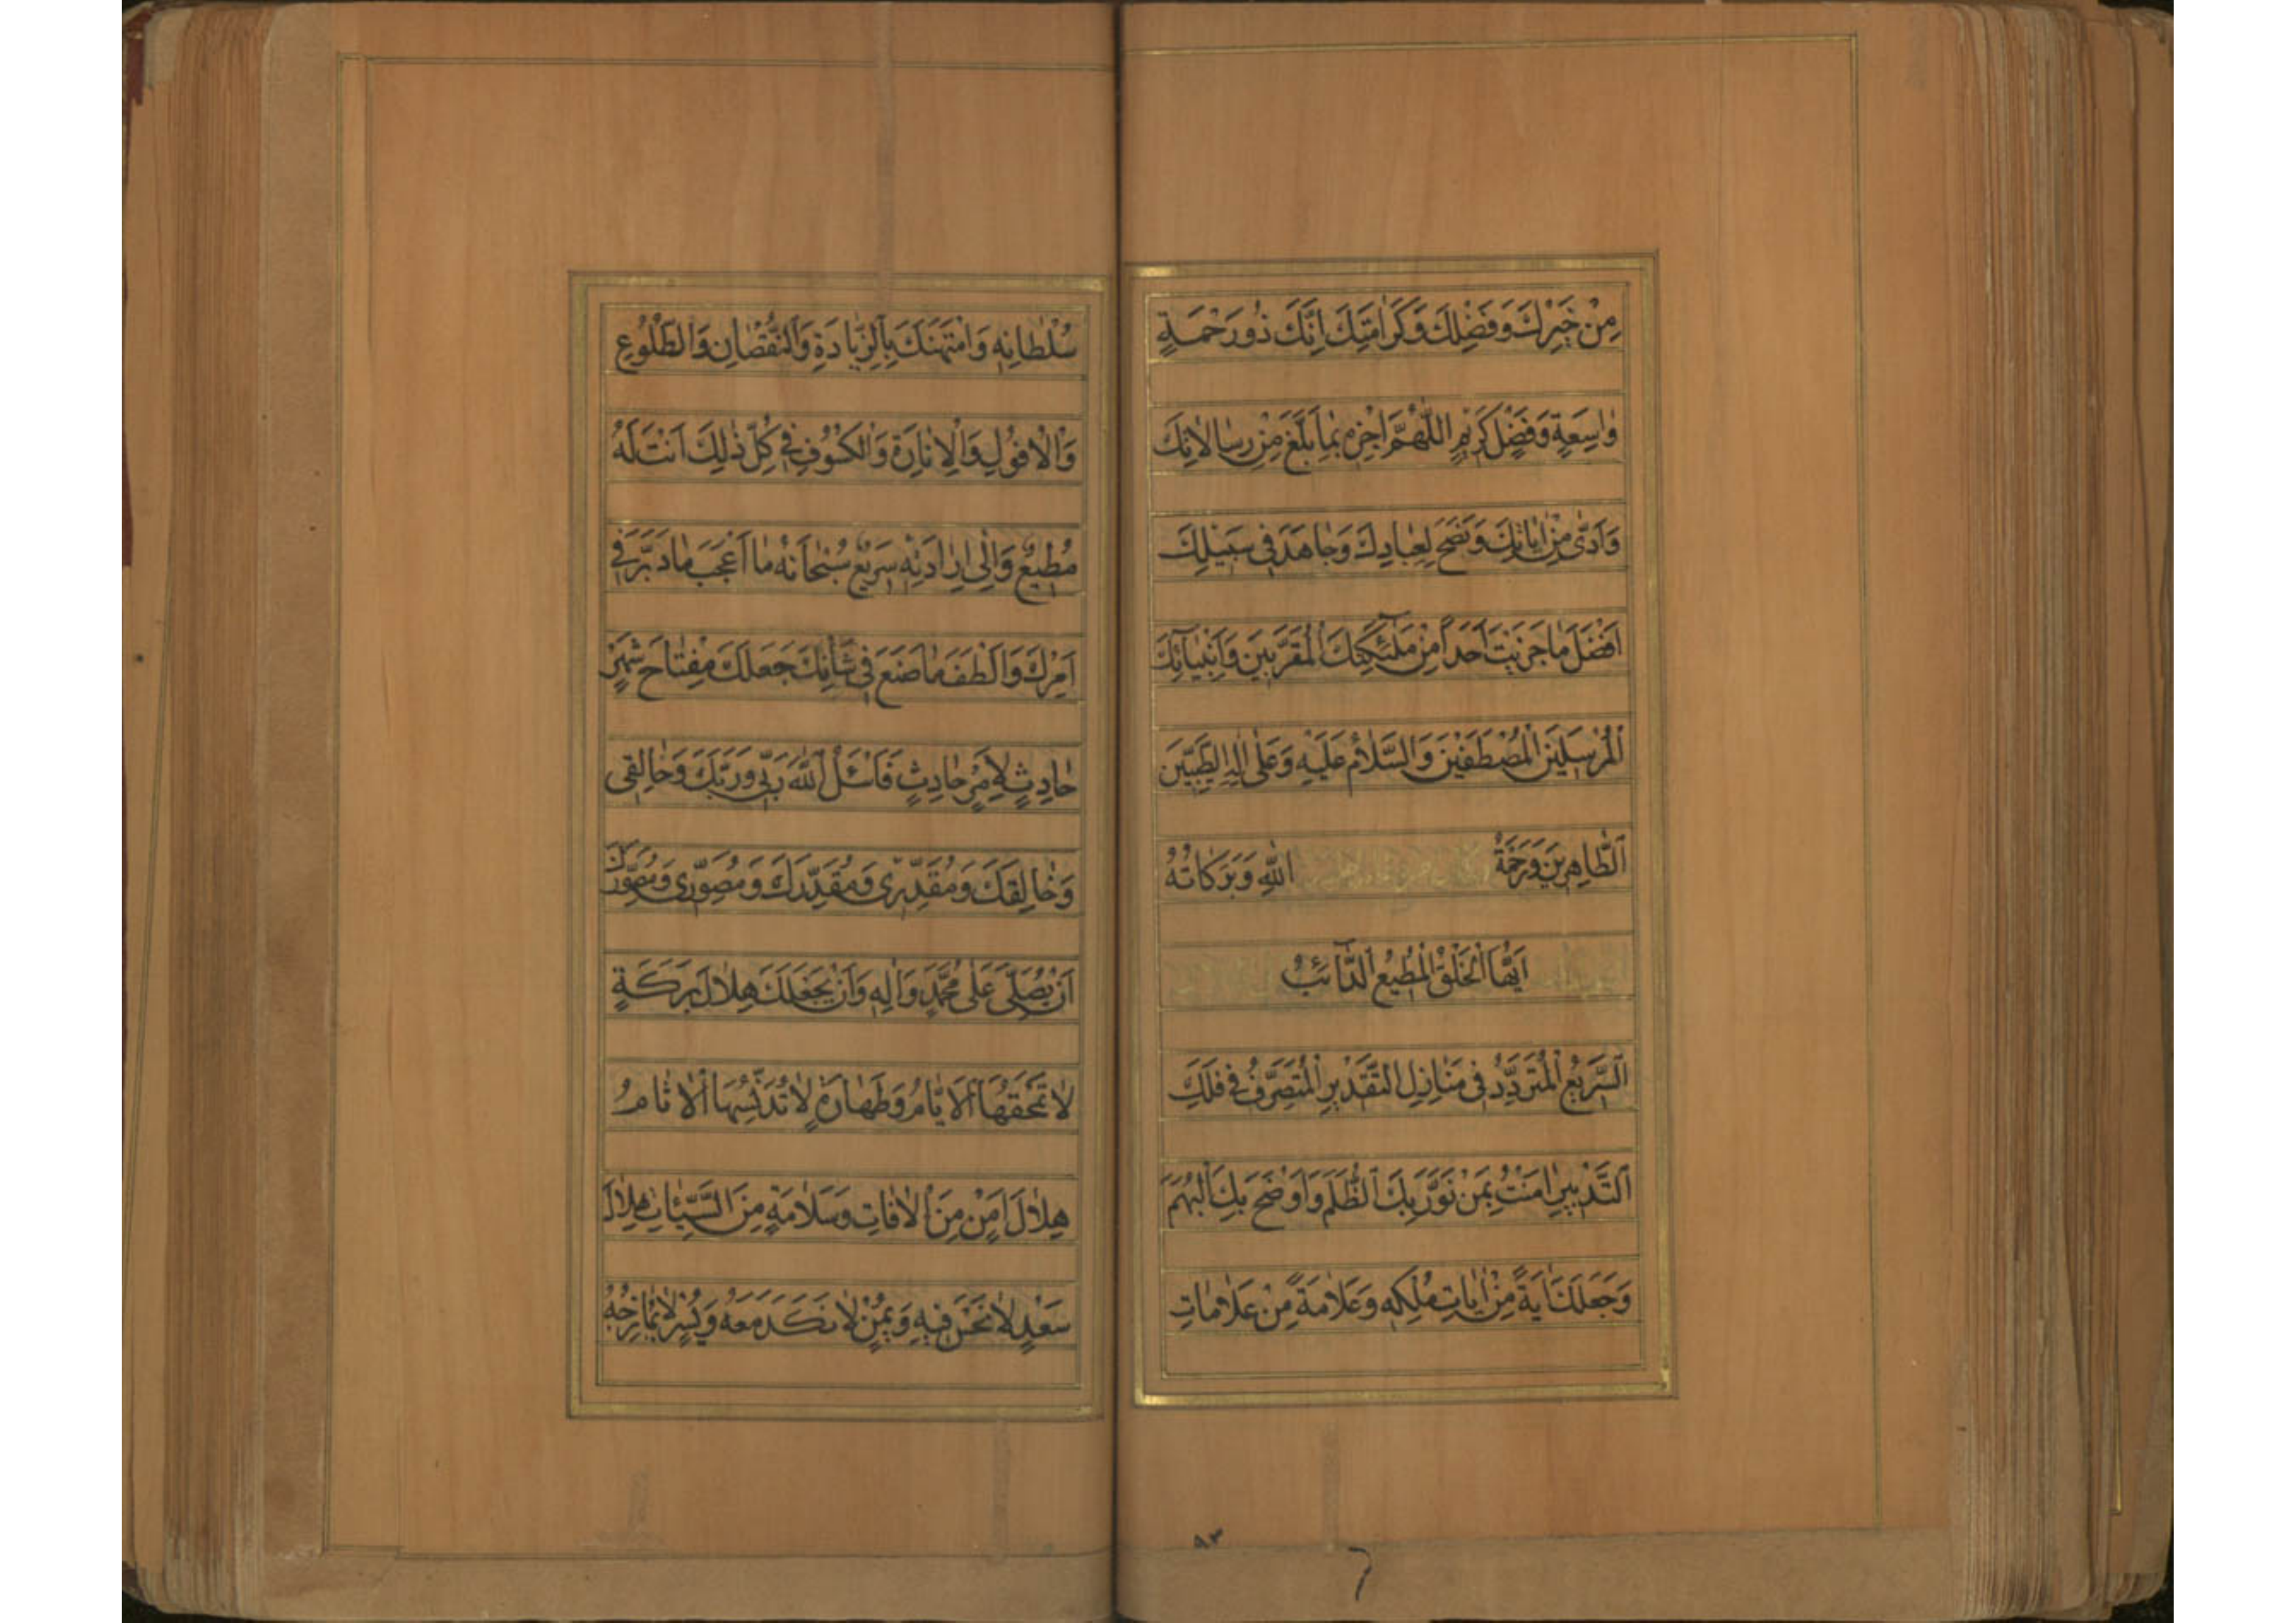 مِنْ خَيْرِكَ وَفَضْلِكَ وَكَرَامَتِكَ اِنَّكَ ذُورَحْمَةٍ
وٰاسِعَةٍ وَفَضْلٍ كَرِيمٍ اللّٰهُمَّ اجْزِهِ بِمٰا بَلَّغَ مِنْ رِسٰالاٰتِكَ
وَاَدّٰى مِنْ اٰيٰاتِكَ وَنَصَحَ لِعِبٰادِكَ وَجٰاهَدَ فِى سَبِيْلِكَ
اَفْضَلَ مٰا جَزَيْتَ اَحَداً مِنْ مَلٰٓئِكَتِكَ الْمُقَرَّبِينَ وَاَنْبِيٰآئِكَ
اَلْمُرْسَلِيَن الْمُصْطَفَيْنَ وَالسَّلاٰمُ عَلَيْهِ وَعَلٰى اٰلِهِ الطَّيِّبِينَ
اَلطّٰاهِرِينَ وَرَحْمَةُ اللّٰهِ وَبَرَكٰاتُهُ
اَيُّهَا الْخَلْقُ الْمُطِيعُ اَلدّٰآئِبُ
اَلسَّرِيعُ الْمُتَرَدِّدُ فِى مَنٰازِلِ التَّقْدِيرِ الْمُتَصَرِّفُ فِى فَلَكِ
اَلتَّدْبِيرِ اٰمَنْتُ بِمَنْ نَوَّرَ بِكَ الظُّلَمَ وَاَوْضَحَ بِكَ الْبُهَمَ
وَجَعَلَكَ اٰيَةً مِنْ اٰيٰاتِ مُلْكِهِ وَعَلاٰمَةً مِنْ عَلاٰمٰاتِ
سُلْطٰانِهِ وَامْتَهَنَكَ بِالزِّيٰادَةِ وَالنُّقْصٰانِ وَالطُّلُوعِ
وَالْاُفُولِ وَالْاِنٰارَةِ وَالْكُسُوفِ فِى كُلِّ ذٰلِكَ اَنْتَ لَهُ
مُطِيعٌ وَاِلٰى اِرٰادَتِهِ سَرِيْعٌ سُبْحٰانَهُ مٰا اَعْجَبَ مٰا دَبَّرَ فِى
اَمْرِكَ وَاَلْطَفَ مٰا صَنَعَ فِى شَاْنِكَ جَعَلَكَ مِفْتٰاحَ شَهْرٍ
حٰادِثٍ لِاَمْرٍ حٰادِثٍ فَاَسْئَلُ اللّٰهَ رَبّى وَرَبَّكَ وَخٰالِقِى
وَخٰالِقَكَ وَمُقَدِّرِى وَمُقَدِّرَكَ وَمُصَوِّرِى وَمُصَوِّرَكَ
اَنْ يُصَلِّىَ عَلٰى مُحَمَّدٍ وَاٰلِهِ وَاَنْ يَجْعَلَكَ هِلاٰلَ بَرَكَةٍ
لاٰ تَمْحَقُهَا الْاَيّٰامُ وَطَهٰارَةٍ لاٰ تُدَنِّسُهَا الْاٰثٰامُ
هِلاٰلَ اَمْنٍ مِنَ الْاٰفٰاتِ وَسَلاٰمَةٍ مِنَ السَّيِّئٰاتِ هِلاٰلَ
سَعْدٍ لاٰ نَحْسَ فِيهِ وَيُمْنٍ لاٰ نَكَدَ مَعَهُ وَيُسْرٍ لاٰ يُمٰازِجُهُ
٩٣